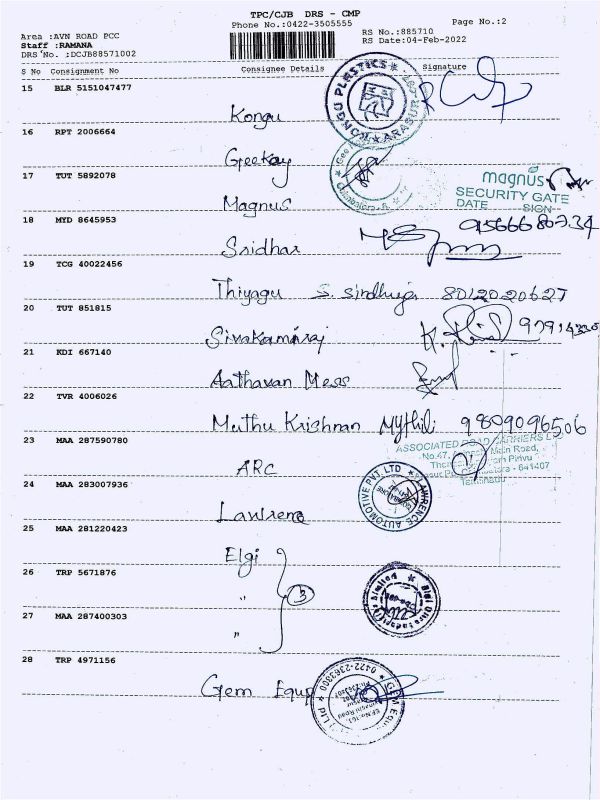 TPC/CJB DRS - CMP
Phone No.:0422-3505555
Page No.:2
Area :AVN ROAD PCC
RS No.:885710
Staff :RAMANA
RS Date:04-Feb-2022
DRS No. :DCJB88571002
S No Consignment No Consignee Details Signature
15 BLR 5151047477
Kongu
KONGU PLASTICS * ARASUR
16 RPT 2006664
Geekay
17 TUT 5892078
Magnus
magnus
SECURITY GATE
DATE SIGN
18 MYD 8645953
Sridhar
19 TCG 40022456
Thiyagu S. Sindhuja 8012020627
20 TUT 851815
Sivakamiraj
21 KDI 667140
Aathavan Mess
22 TVR 4006026
Muthu Krishnan Mythili 9809096506
23 MAA 287590780
ARC
ASSOCIATED ROAD CARRIERS LTD
No.47, Main Road,
641407
Tamilnadu
24 MAA 283007936
Lawrence
LAWRENCE AUTOMOTIVE PVT. LTD
25 MAA 281220423
Elgi
26 TRP 5671876
"
3
27 MAA 287400303
"
28 TRP 4971156
Gem Equp
0422-2363800